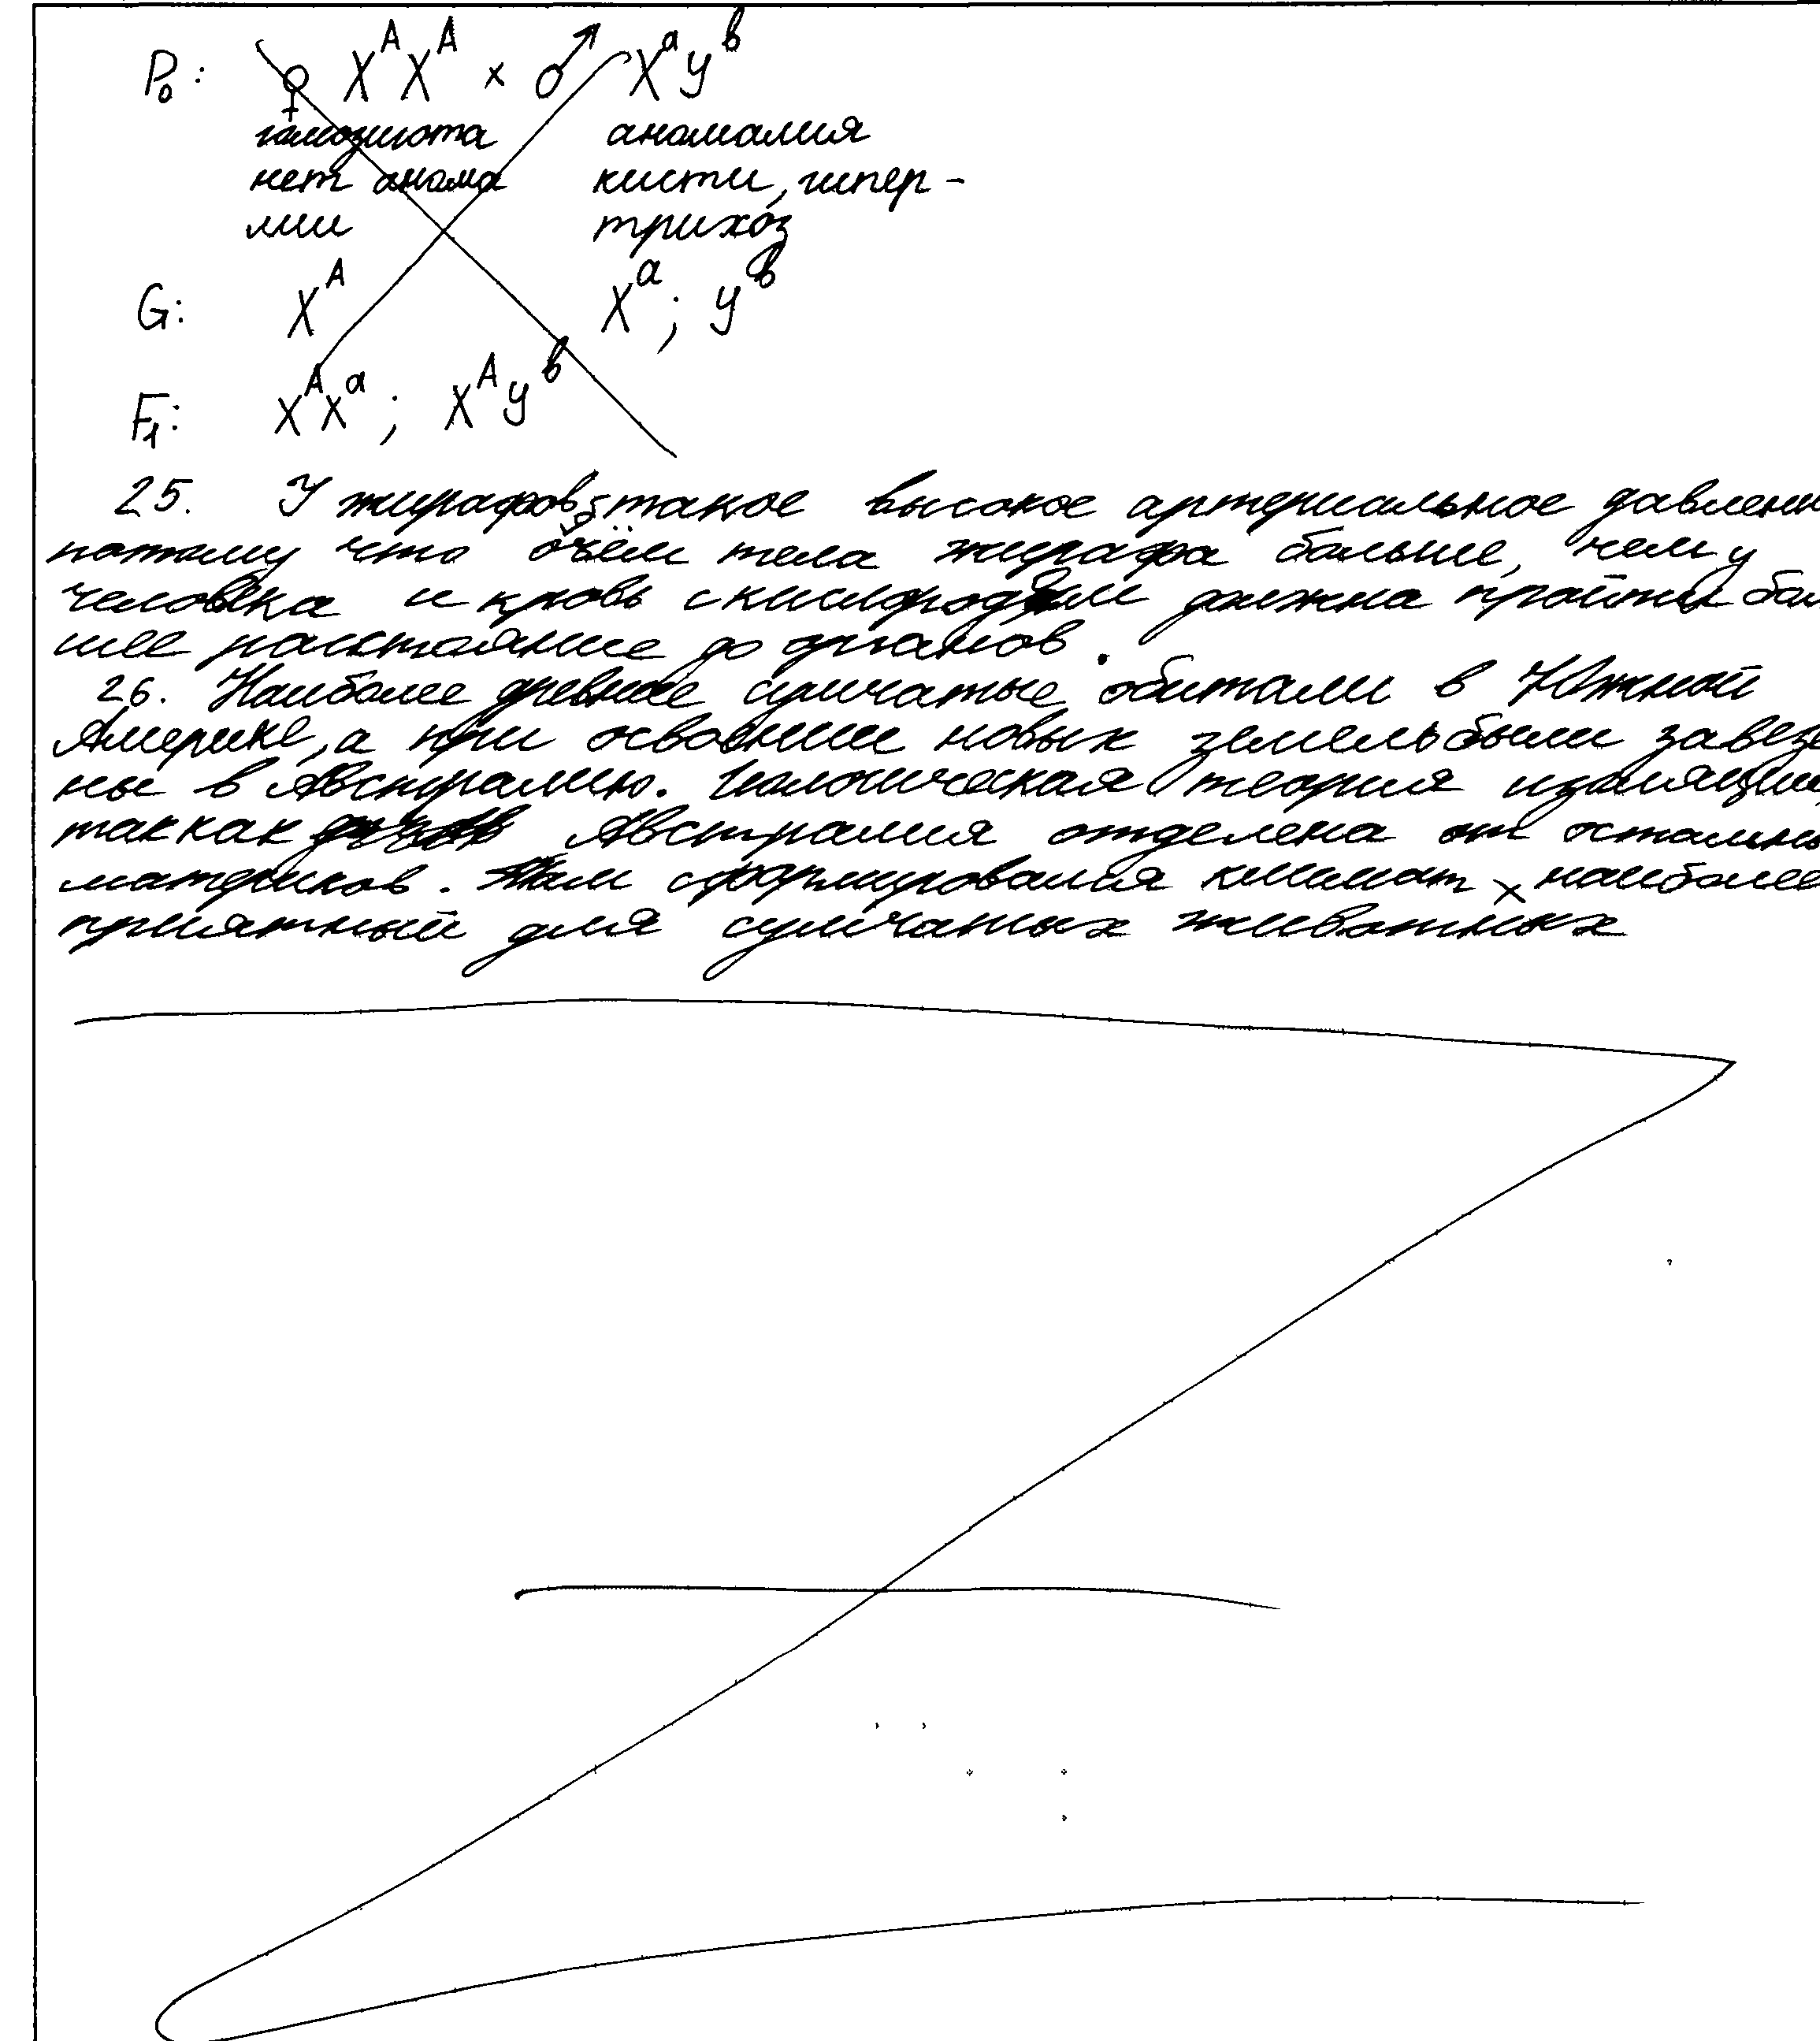 P₀: ♀ XᴬXᴬ × ♂ XᵃYᵇ
гомозигота аномалия
нет анома кисти, гипер-
лии трихоз
G: Xᴬ Xᵃ; Yᵇ
F₁: XᴬXᵃ; XᴬYᵇ
25. У жирафов такое высокое артериальное давлени
потому что объём тела жирафа больше, чем у
человека и кровь с кислородом должна пройти бол
шее расстояние до органов.
26. Наиболее древние сумчатые обитали в Южной
Америке, а при освоении новых земель были завезе
ны в Австралию. теория изоляции,
так как Австралия отделена от остальны
материков. Там сформировался климат наиболее
приятный для сумчатых животных